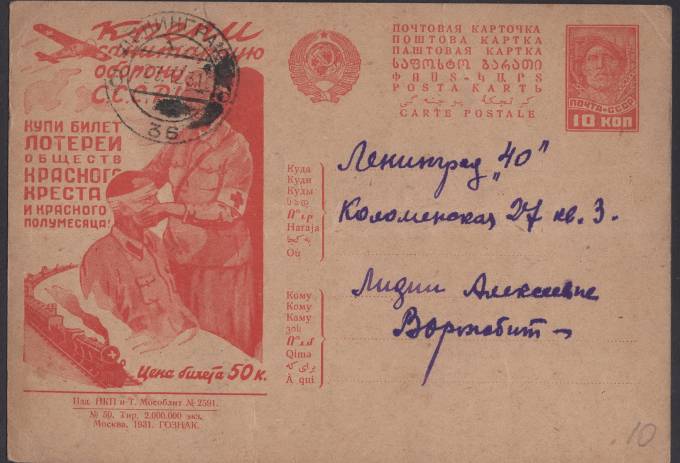 Крепи
санитарную
оборону
С.С.С.Р.!
ЛЕНИНГРАД
36
КУПИ БИЛЕТ
ЛОТЕРЕИ
ОБЩЕСТВ
КРАСНОГО
КРЕСТА
И КРАСНОГО
ПОЛУМЕСЯЦА!
Цена билета 50 к.
Изд. НКП и Т. Мособлит № 2591.
№ 50. Тир. 2.000.000 экз.
Москва, 1931. ГОЗНАК.
ПОЧТОВАЯ КАРТОЧКА
ПОШТОВА КАРТКА
ПАШТОВАЯ КАРТКА
ᲡᲐᲤᲝᲡᲢᲝ ᲑᲐᲠᲐᲗᲘ
POSTA KARTЬ
CARTE POSTALE
ПОЧТА·СССР
10 КОП
Куда
Куди
Куды
Haraja
Où
Ленинград „40"
Коломенская 27 кв. 3.
Кому
Кому
Каму
ვის
Qima
À qui
Лидии Алексеевне
Воржебит
10